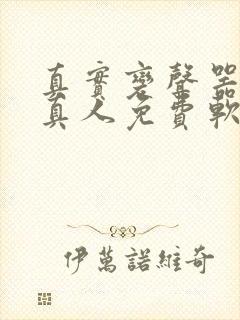 真實變聲器
真人免費軟
伊萬諾維奇